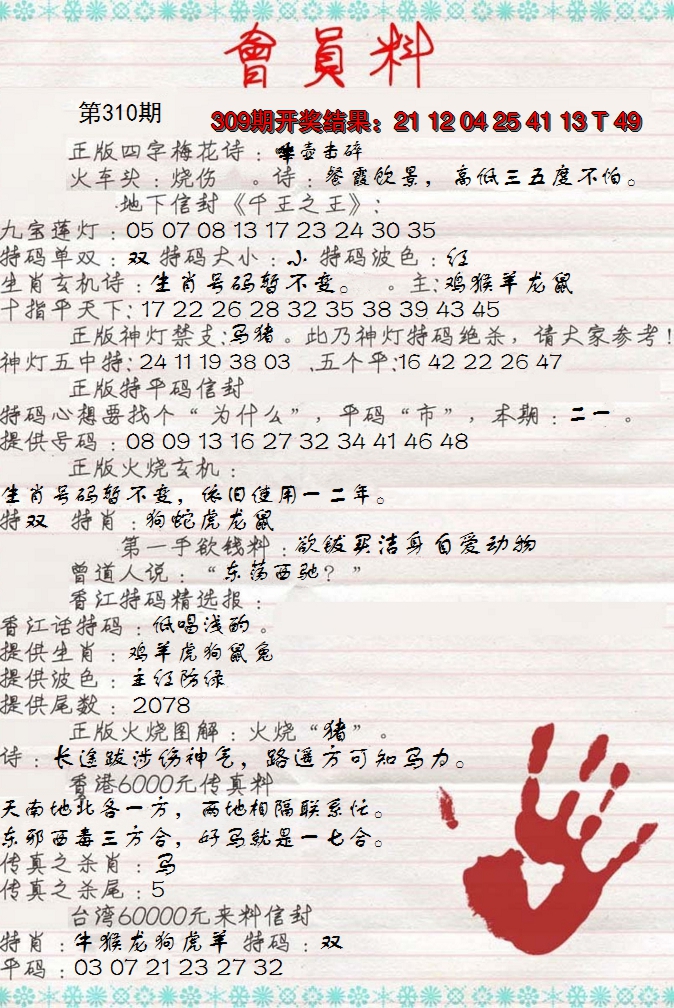 會員料
第310期
309期开奖结果：21 12 04 25 41 13 T 49
正版四字梅花诗：壶击碎
火车头：烧伤 。诗：餐霞饮景，高低三五度不怕。
地下信封《千王之王》：
九宝莲灯：05 07 08 13 17 23 24 30 35
特码单双：双 特码大小：小 特码波色：红
生肖玄机诗：生肖号码暂不变。 。主：鸡猴羊龙鼠
十指平天下：17 22 26 28 32 35 38 39 43 45
正版神灯禁支：马猪。此乃神灯特码绝杀，请大家参考！
神灯五中特：24 11 19 38 03 、五个平：16 42 22 26 47
正版特平码信封
特码心想要找个“为什么”，平码“市”，本期：二一 。
提供号码：08 09 13 16 27 32 34 41 46 48
正版火烧玄机：
生肖号码暂不变，依旧使用一二年。
特双 特肖：狗蛇虎龙鼠
第一手欲钱料：欲钱买洁身自爱动物
曾道人说：“东荡西驰？”
香江特码精选报：
香江话特码：低唱浅酌。
提供生肖：鸡羊虎狗鼠兔
提供波色：主红防绿
提供尾数：2078
正版火烧图解：火烧“猪”。
诗：长途跋涉伤神气，路遥方可知马力。
香港6000元传真料
天南地北各一方，两地相隔联系忙。
东邪西毒三方合，好马就是一七合。
传真之杀肖：马
传真之杀尾：5
台湾60000元来料信封
特肖：牛猴龙狗虎羊 特码：双
平码：03 07 21 23 27 32